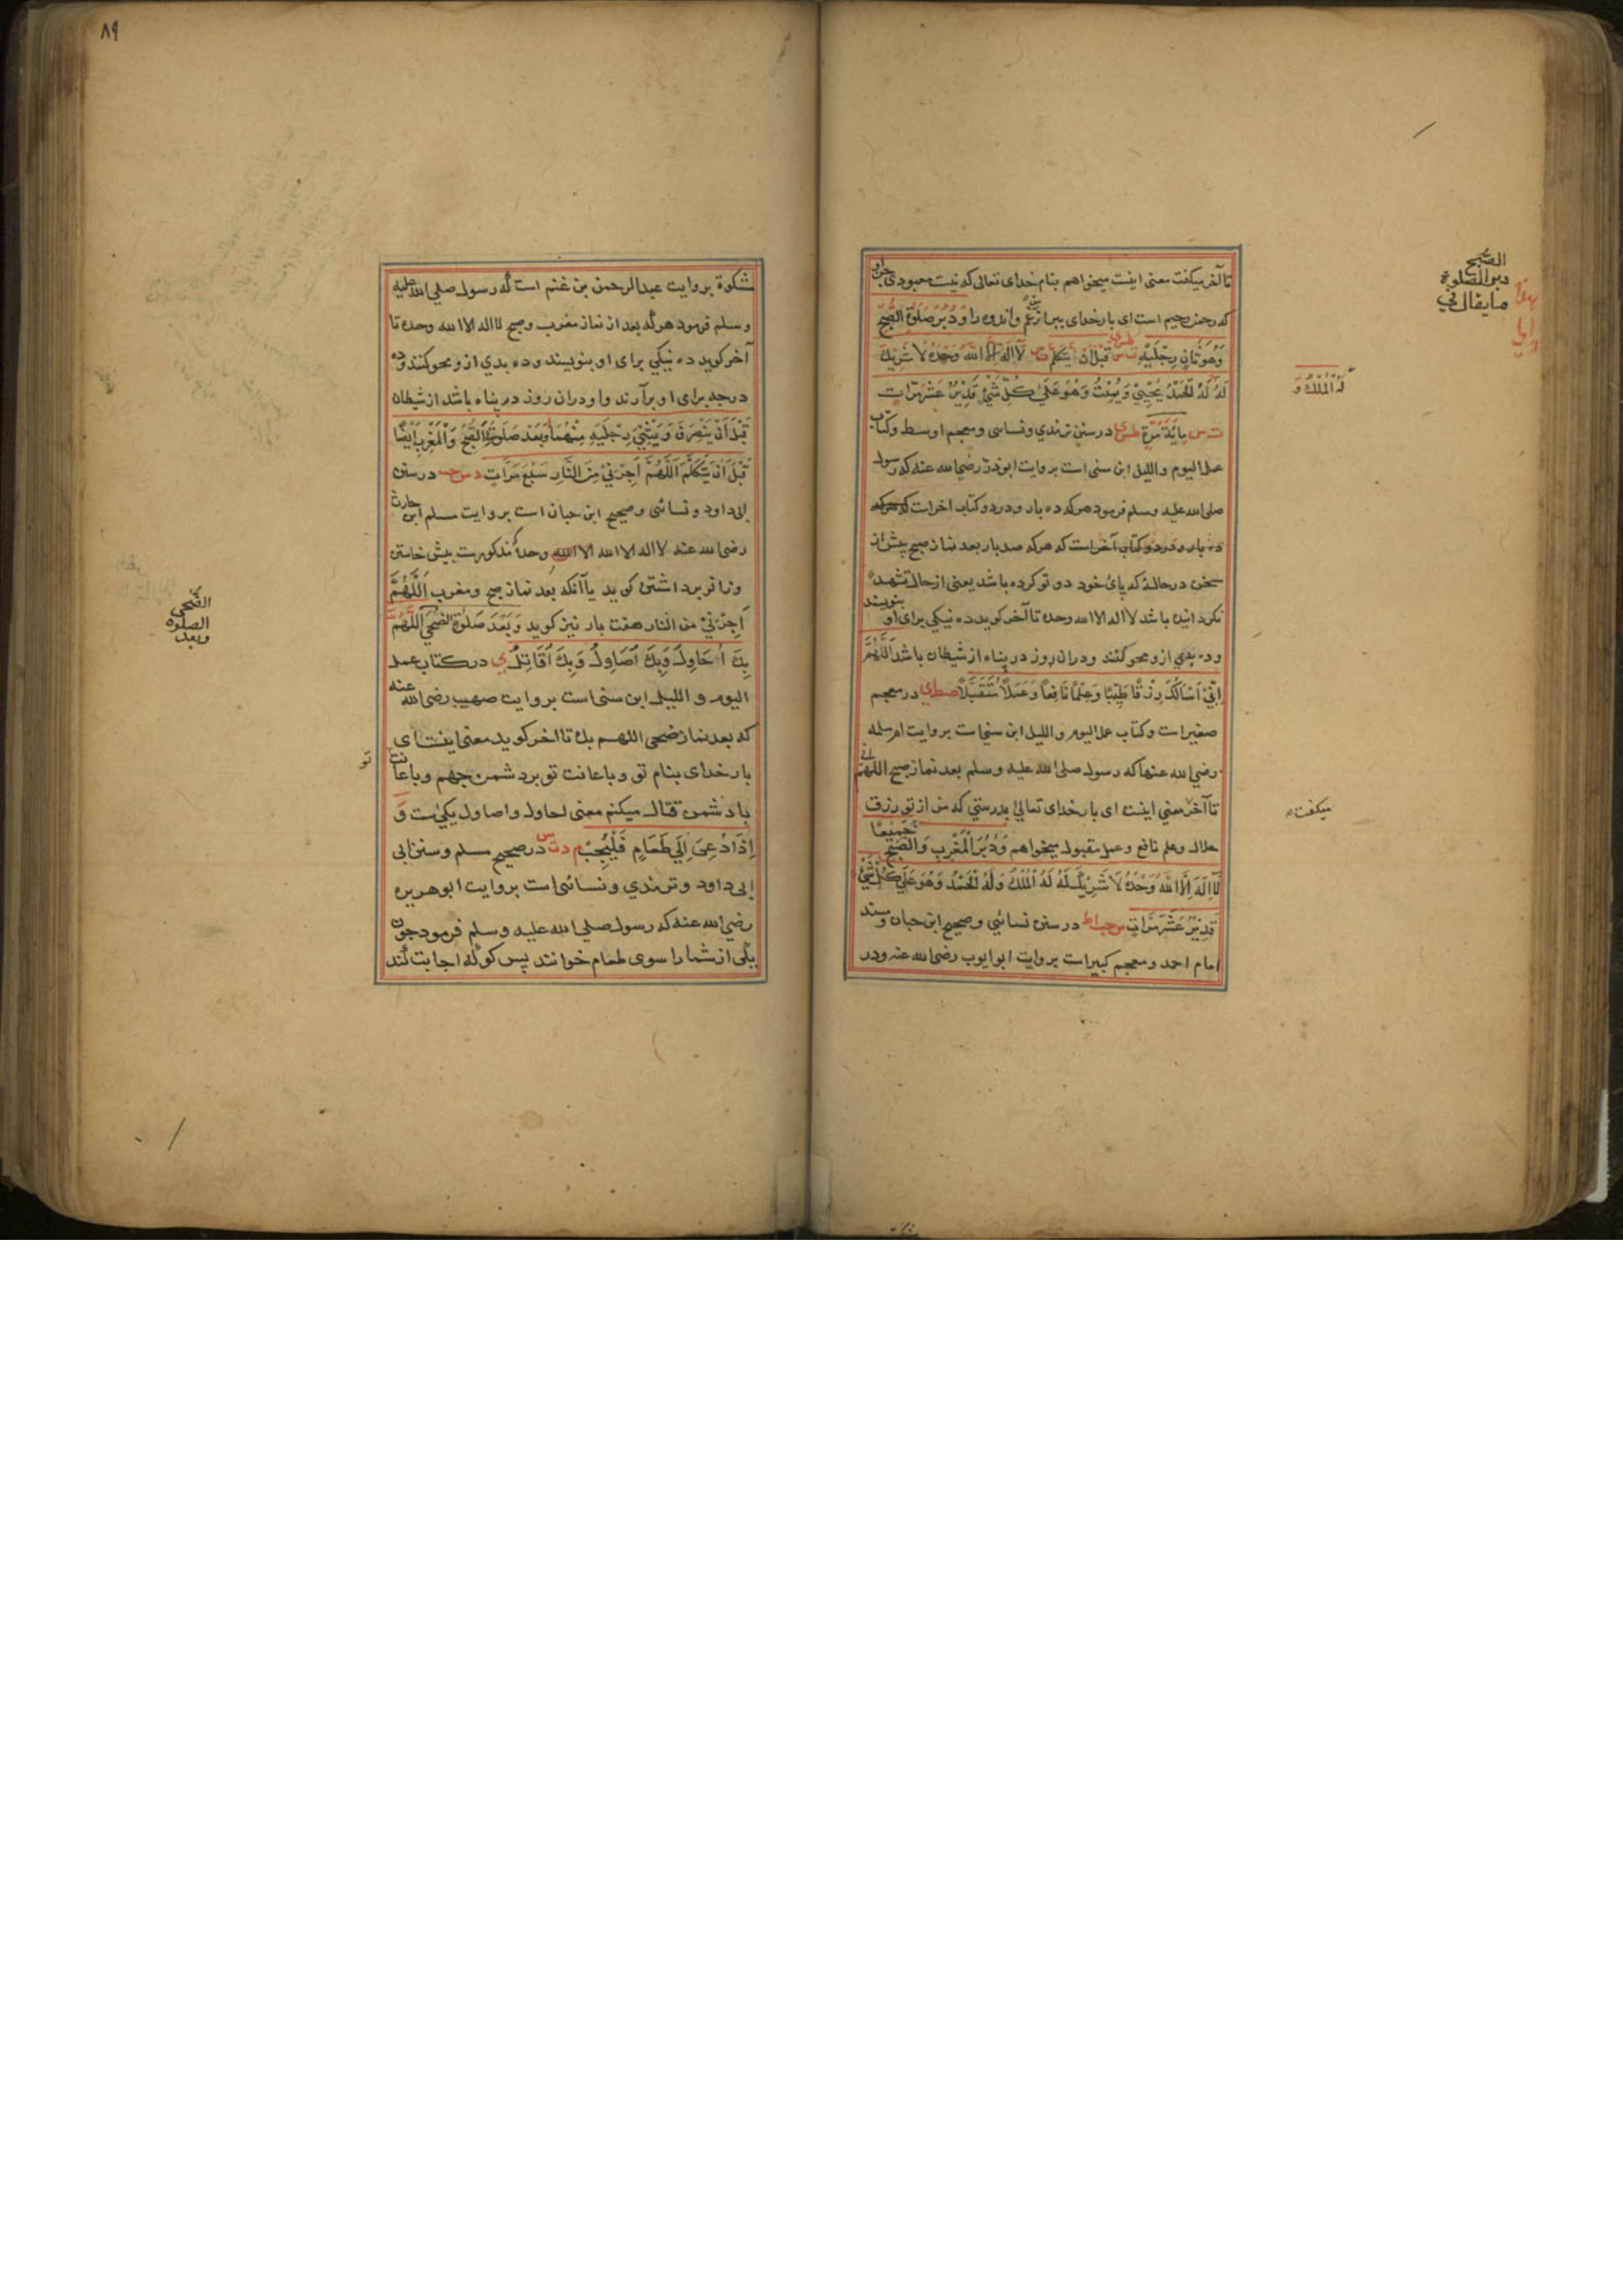 تا آخر میکفت معنی اینست میخواهم بنام خدای تعالی که نیست معبودی جز او
که رحمن رحیم است ای بار خدای ببر از من غم و اندوه را وَدُبُرَ صَلٰوةِ الصُّبْحِ
وَهُوَ ثَانٍ رِجْلَیْهِ ت س طس ی قَبْلَ اَنْ یَتَکَلَّمَ لَا اِلٰهَ اِلَّا اللهُ وَحْدَهُ لَا شَرِیْكَ
لَهُ لَهُ الْحَمْدُ یُحْیِیْ وَیُمِیْتُ وَهُوَ عَلٰی کُلِّ شَیْءٍ قَدِیْرٌ عَشْرَ مَرَّاتٍ
ت س مِایَةَ مَرَّةٍ طس ی در سنن ترمذی و نسائی و معجم اوسط و کتاب
عمل الیوم واللیل ابن سنی است بروایت ابوذر رضی الله عنه که رسول
صلی الله علیه وسلم فرمود هرکه ده بار و در دو کتاب اخراست که هرکه
ده بار و در دو کتاب آخر است که هرکه صد بار بعد نماز صبح پیش از
سخن در حالۀ که پای خود دو تو کرده باشد یعنی از حال تشهد
نگردانیده باشد لا اله الا الله وحده تا آخر کوید ده نیکی برای او بنویسند
و ده بدی ازو محو کنند و دران روز در پناه از شیطان باشد اَللّٰهُمَّ
اِنِّیْ اَسْاَلُكَ رِزْقًا طَیِّبًا وَعِلْمًا نَافِعًا وَعَمَلًا مُتَقَبَّلًا صط ی در معجم
صغیر است و کتاب عمل الیوم و اللیل ابن سنی است بروایت ام سلمه
رضی الله عنها که رسول صلی الله علیه وسلم بعد نماز صبح اللهم انی
تا آخر معنی اینست ای بار خدای تعالی بدرستی که من از تو رزق
حلال و علم نافع و عمل مقبول میخواهم وَدُبُرَ الْمَغْرِبِ وَالصُّبْحِ جَمِیْعًا
لَا اِلٰهَ اِلَّا اللهُ وَحْدَهُ لَا شَرِیْكَ لَهُ لَهُ الْمُلْكُ وَلَهُ الْحَمْدُ وَهُوَ عَلٰی کُلِّ شَیْءٍ
قَدِیْرٌ عَشْرَ مَرَّاتٍ س حب ا ط در سنن نسائی و صحیح ابن حبان و مسند
امام احمد و معجم کبیر است بروایت ابو ایوب رضی الله عنه و در
ما یقال فی
دبر الصلوة
الصبح
لَهُ الْمُلْكُ وَ
میکفت
۸۹
مشکوة بروایت عبدالرحمن بن غنم است که رسول صلی الله علیه
وسلم فرمود هرکه بعد از نماز مغرب و صبح لا اله الا الله وحده تا
آخر کوید ده نیکی برای او بنویسند و ده بدی ازو محو کنند و ده
درجه برای او برآرند و او دران روز در پناه باشد از شیطان
قَبْلَ اَنْ یَنْصَرِفَ وَ یَثْنِیَ رِجْلَیْهِ مِنْهُمَا وَبَعْدَ صَلٰوةِ الصُّبْحِ وَالْمَغْرِبِ اَیْضًا
قَبْلَ اَنْ یَتَکَلَّمَ اَللّٰهُمَّ اَجِرْنِیْ مِنَ النَّارِ سَبْعَ مَرَّاتٍ د س حب در سنن
ابی داود و نسائی و صحیح ابن حبان است بروایت مسلم ابن حارث
رضی الله عنه لا اله الا الله الا الله وحده مذکور ست پیش خاستن
وزانو برداشتن کوید یا آنکه بعد نماز صبح و مغرب اَللّٰهُمَّ
اَجِرْنِیْ من النار هفت بار نیز کوید وَبَعْدَ صَلٰوةِ الضُّحٰی اَللّٰهُمَّ
بِكَ اُحَاوِلُ وَبِكَ اُصَاوِلُ وَبِكَ اُقَاتِلُ ی در کتاب عمل
الیوم و اللیل ابن سنی است بروایت صهیب رضی الله عنه
که بعد نماز ضحی اللهم بك تا آخر کوید معنی اینست ای
بار خدای بنام تو و باعانت تو بر دشمن جهم و باعانت
تو
با دشمن قتال میکنم معنی احاول و اصاول یکیست وَ
اِذَا دُعِیَ اِلٰی طَعَامٍ فَلْیُجِبْ م د ت س در صحیح مسلم و سنن ابی
ابی داود و ترمذی و نسائی است بروایت ابو هریره
رضی الله عنه که رسول صلی الله علیه وسلم فرمود چون
یکی از شما را سوی طعام خوانند پس کو که اجابت کند
وبعد
الصلوة
الضحی